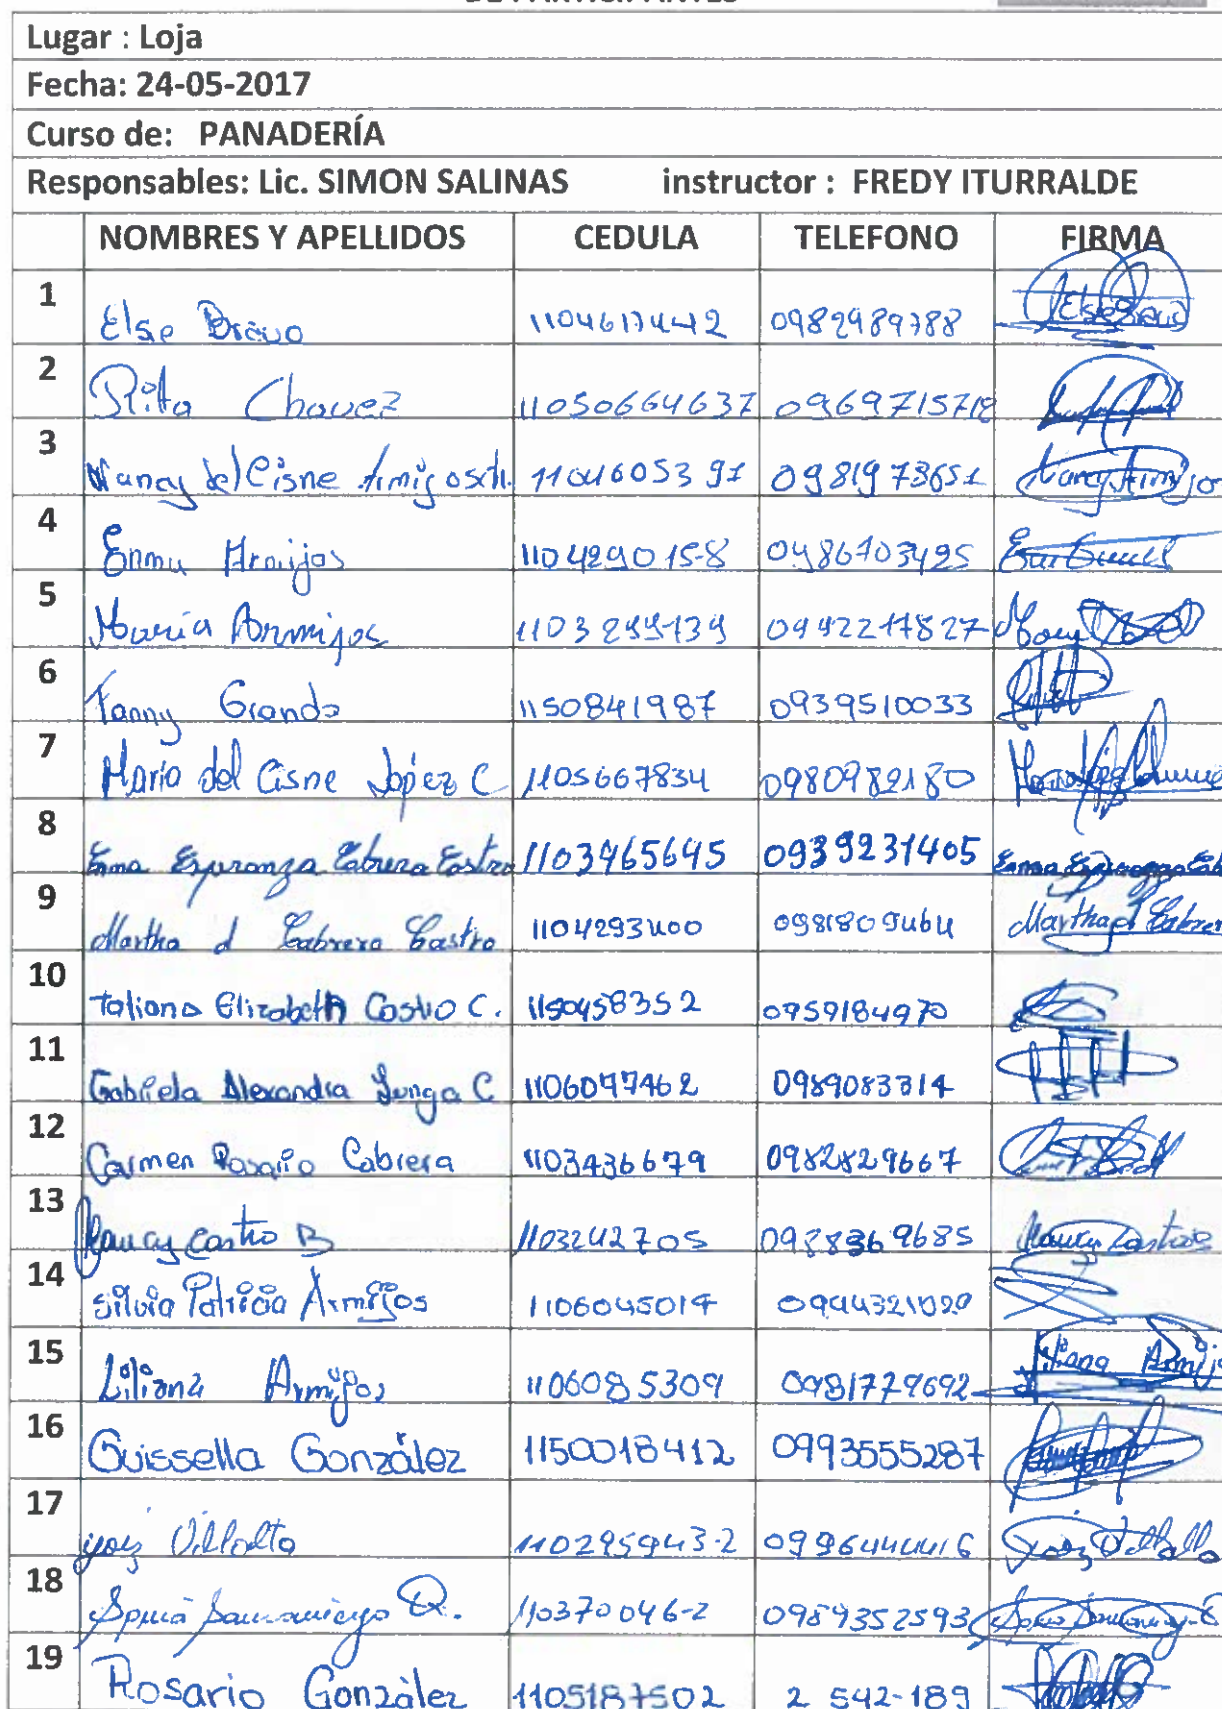 DE PARTICIPANTES
Lugar : Loja
Fecha: 24-05-2017
Curso de: PANADERÍA
Responsables: Lic. SIMON SALINAS instructor : FREDY ITURRALDE
NOMBRES Y APELLIDOS CEDULA TELEFONO FIRMA
1 Else Bravo 1104617442 0982989788
2 Rita Chavez 11050664637 0969715718
3 Nancy del Cisne Armijos 1104605391 0981973651 Nancy Armijos
4 Enmu Armijos 110429015-8 0986703495
5 Maria Armijos 0992217827
6 Fanny Granda 1150841987 0939510033
7 Maria del Cisne López C 1105667834 0980982180
8 Enma Esperanza Cabrera Castro 1103465645 0939231405 Enma Esperanza Cab
9 Martha d Cabrera Castro 1104293400 0981809464 Martha d Cabrer
10 Tatiana Elizabeth Castro C. 1150458352 0959184970
11 Gabriela Alexandra Sunga C 1106077462 0989083314
12 Carmen Rosario Cabrera 1103436679 0982829667
13 Nancy Castro B 1103242705 0988369685 Nancy Castro B
14 Silvia Patricia Armijos 1106045014 0994321029
15 Liliana Armijos 1106085309 0981779692 Liliana Armijo
16 Guissella González 1150018412 0993555287
17 Villalta 110295943-2 0996444416 Villalta
18 110370046-2 0989352593
19 Rosario González 1105187502 2 542-189